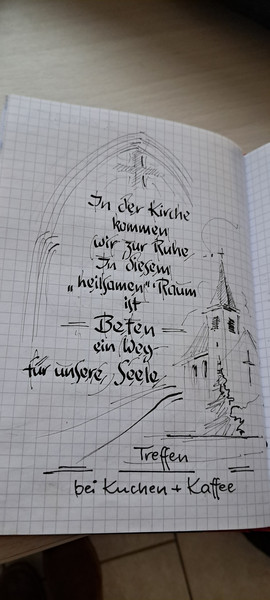 In der Kirche
kommen
wir zur Ruhe
In diesem
„heilsamen" Raum
ist
Beten
ein Weg
für unsere Seele
Treffen
bei Kuchen + Kaffee